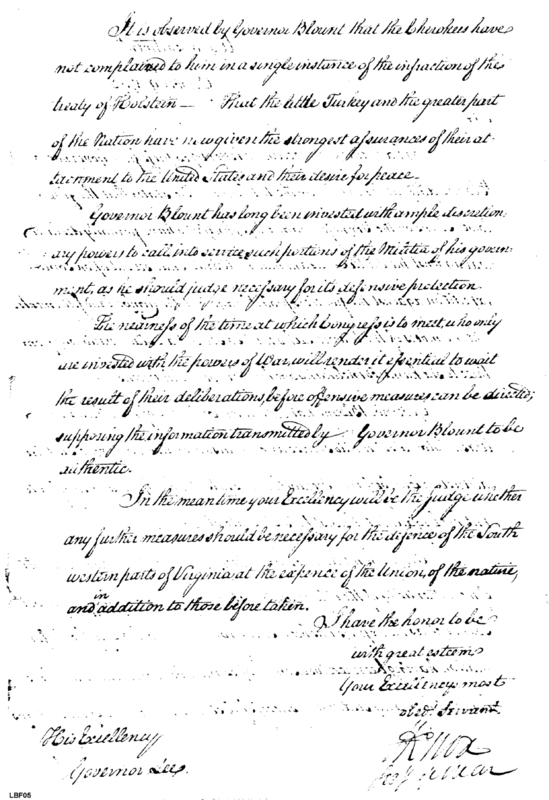 It is observed by Governor Blount that the Cherokees have
not complained to him in a single instance of the infraction of the
treaty of Holstein — That the little Turkey and the greater part
of the Nation have now given the strongest assurances of their at
tachment to the United States and their desire for peace.
Governor Blount has long been invested with ample discretion-
ary powers to call into service, such portions of the Militia of his govern-
ment, as he should judge necessary for its defensive protection.
The nearness of the time at which Congress is to meet, who only
are invested with the powers of War, will render it essential to wait
the result of their deliberations, before offensive measures can be directed;
supposing the information transmitted by Governor Blount to be
authentic.
In the mean time your Excellency will be the judge whether
any further measures should be necessary for the defence of the South
western parts of Virginia at the expence of the Union, of the nature,
and in addition to those before taken.
I have the honor to be
with great esteem
Your Excellency's most
obed. Servant
HKnox
Secy of War
His Excellency
Governor Lee.
LBF05